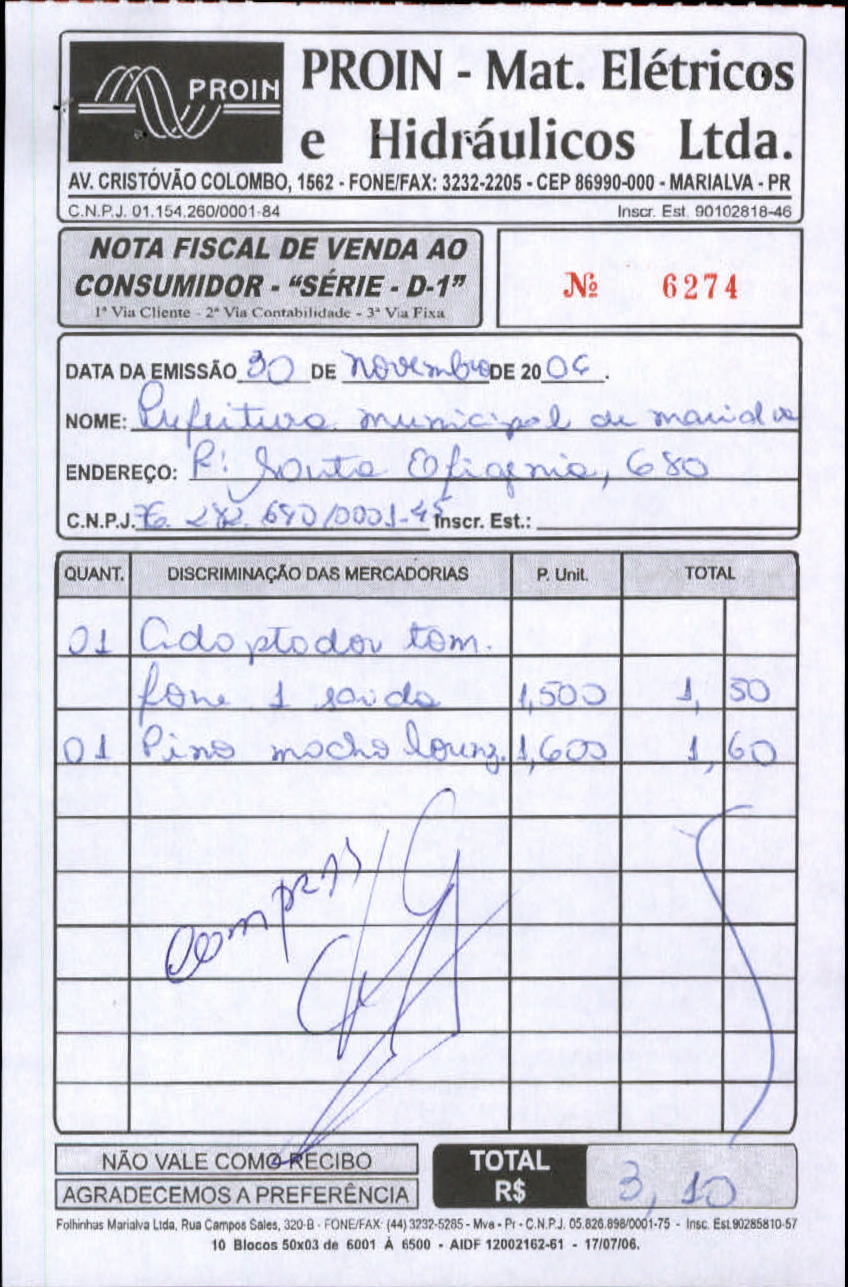 PROIN
PROIN - Mat. Elétricos
e Hidráulicos Ltda.
AV. CRISTÓVÃO COLOMBO, 1562 - FONE/FAX: 3232-2205 - CEP 86990-000 - MARIALVA - PR
C.N.P.J. 01.154.260/0001-84 Inscr. Est. 90102818-46
NOTA FISCAL DE VENDA AO
CONSUMIDOR - “SÉRIE - D-1”
1ª Via Cliente - 2ª Via Contabilidade - 3ª Via Fixa
Nº 6274
DATA DA EMISSÃO 30 DE novembro DE 2006.
NOME: Prefeitura municipal de marialva
ENDEREÇO: R: Santa Efigenia, 680
C.N.P.J. 76.282.680/0001-45 Inscr. Est.:
QUANT. DISCRIMINAÇÃO DAS MERCADORIAS P. Unit. TOTAL
01 Adaptador tom.
fone 1 saida 1,500 1,50
01 Pino macho 1,600 1,60
NÃO VALE COMO RECIBO
AGRADECEMOS A PREFERÊNCIA
TOTAL
R$ 3,10
Folhinhas Marialva Ltda, Rua Campos Sales, 320-B - FONE/FAX: (44) 3232-5285 - Mva - Pr - C.N.P.J. 05.826.898/0001-75 - Insc. Est.90285810-57
10 Blocos 50x03 de 6001 À 6500 - AIDF 12002162-61 - 17/07/06.